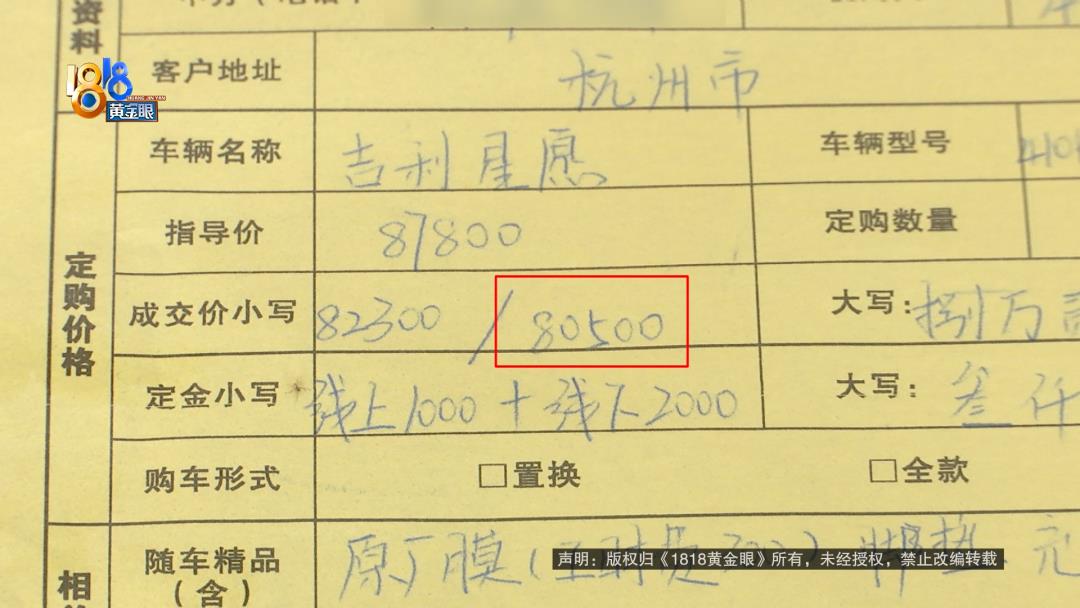 资料
1818
HUANG JIN YAN
黄金眼
客户地址 杭州市
车辆名称 吉利星愿 车辆型号 410
定购价格
指导价 87800 定购数量
成交价小写 82300 / 80500 大写：捌万
定金小写 线上1000 + 线下2000 大写：叁仟
购车形式 □置换 □全款
随车精品（含） 原厂膜（ 脚垫
声明：版权归《1818黄金眼》所有，未经授权，禁止改编转载